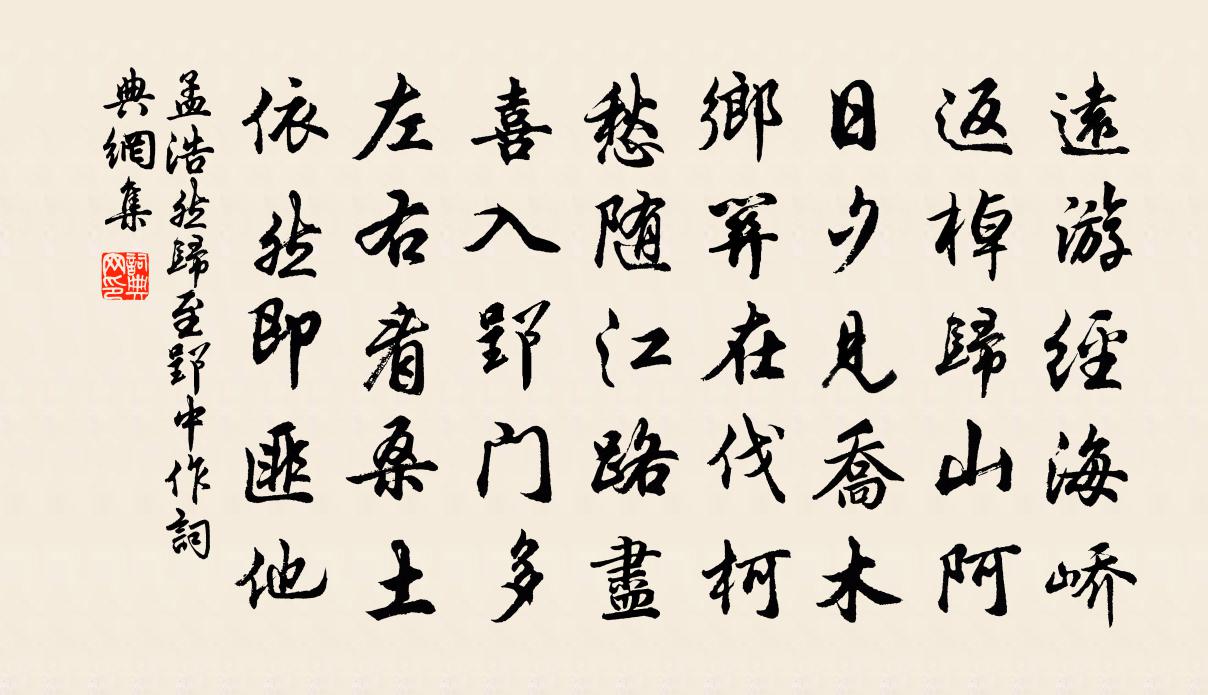 遠游經海嶠
返棹歸山阿
日夕見喬木
鄉關在伐柯
愁随江路盡
喜入郢门多
左右看桑土
依然即匪他
孟浩然歸至郢中作詞
典網集
詞典
网印